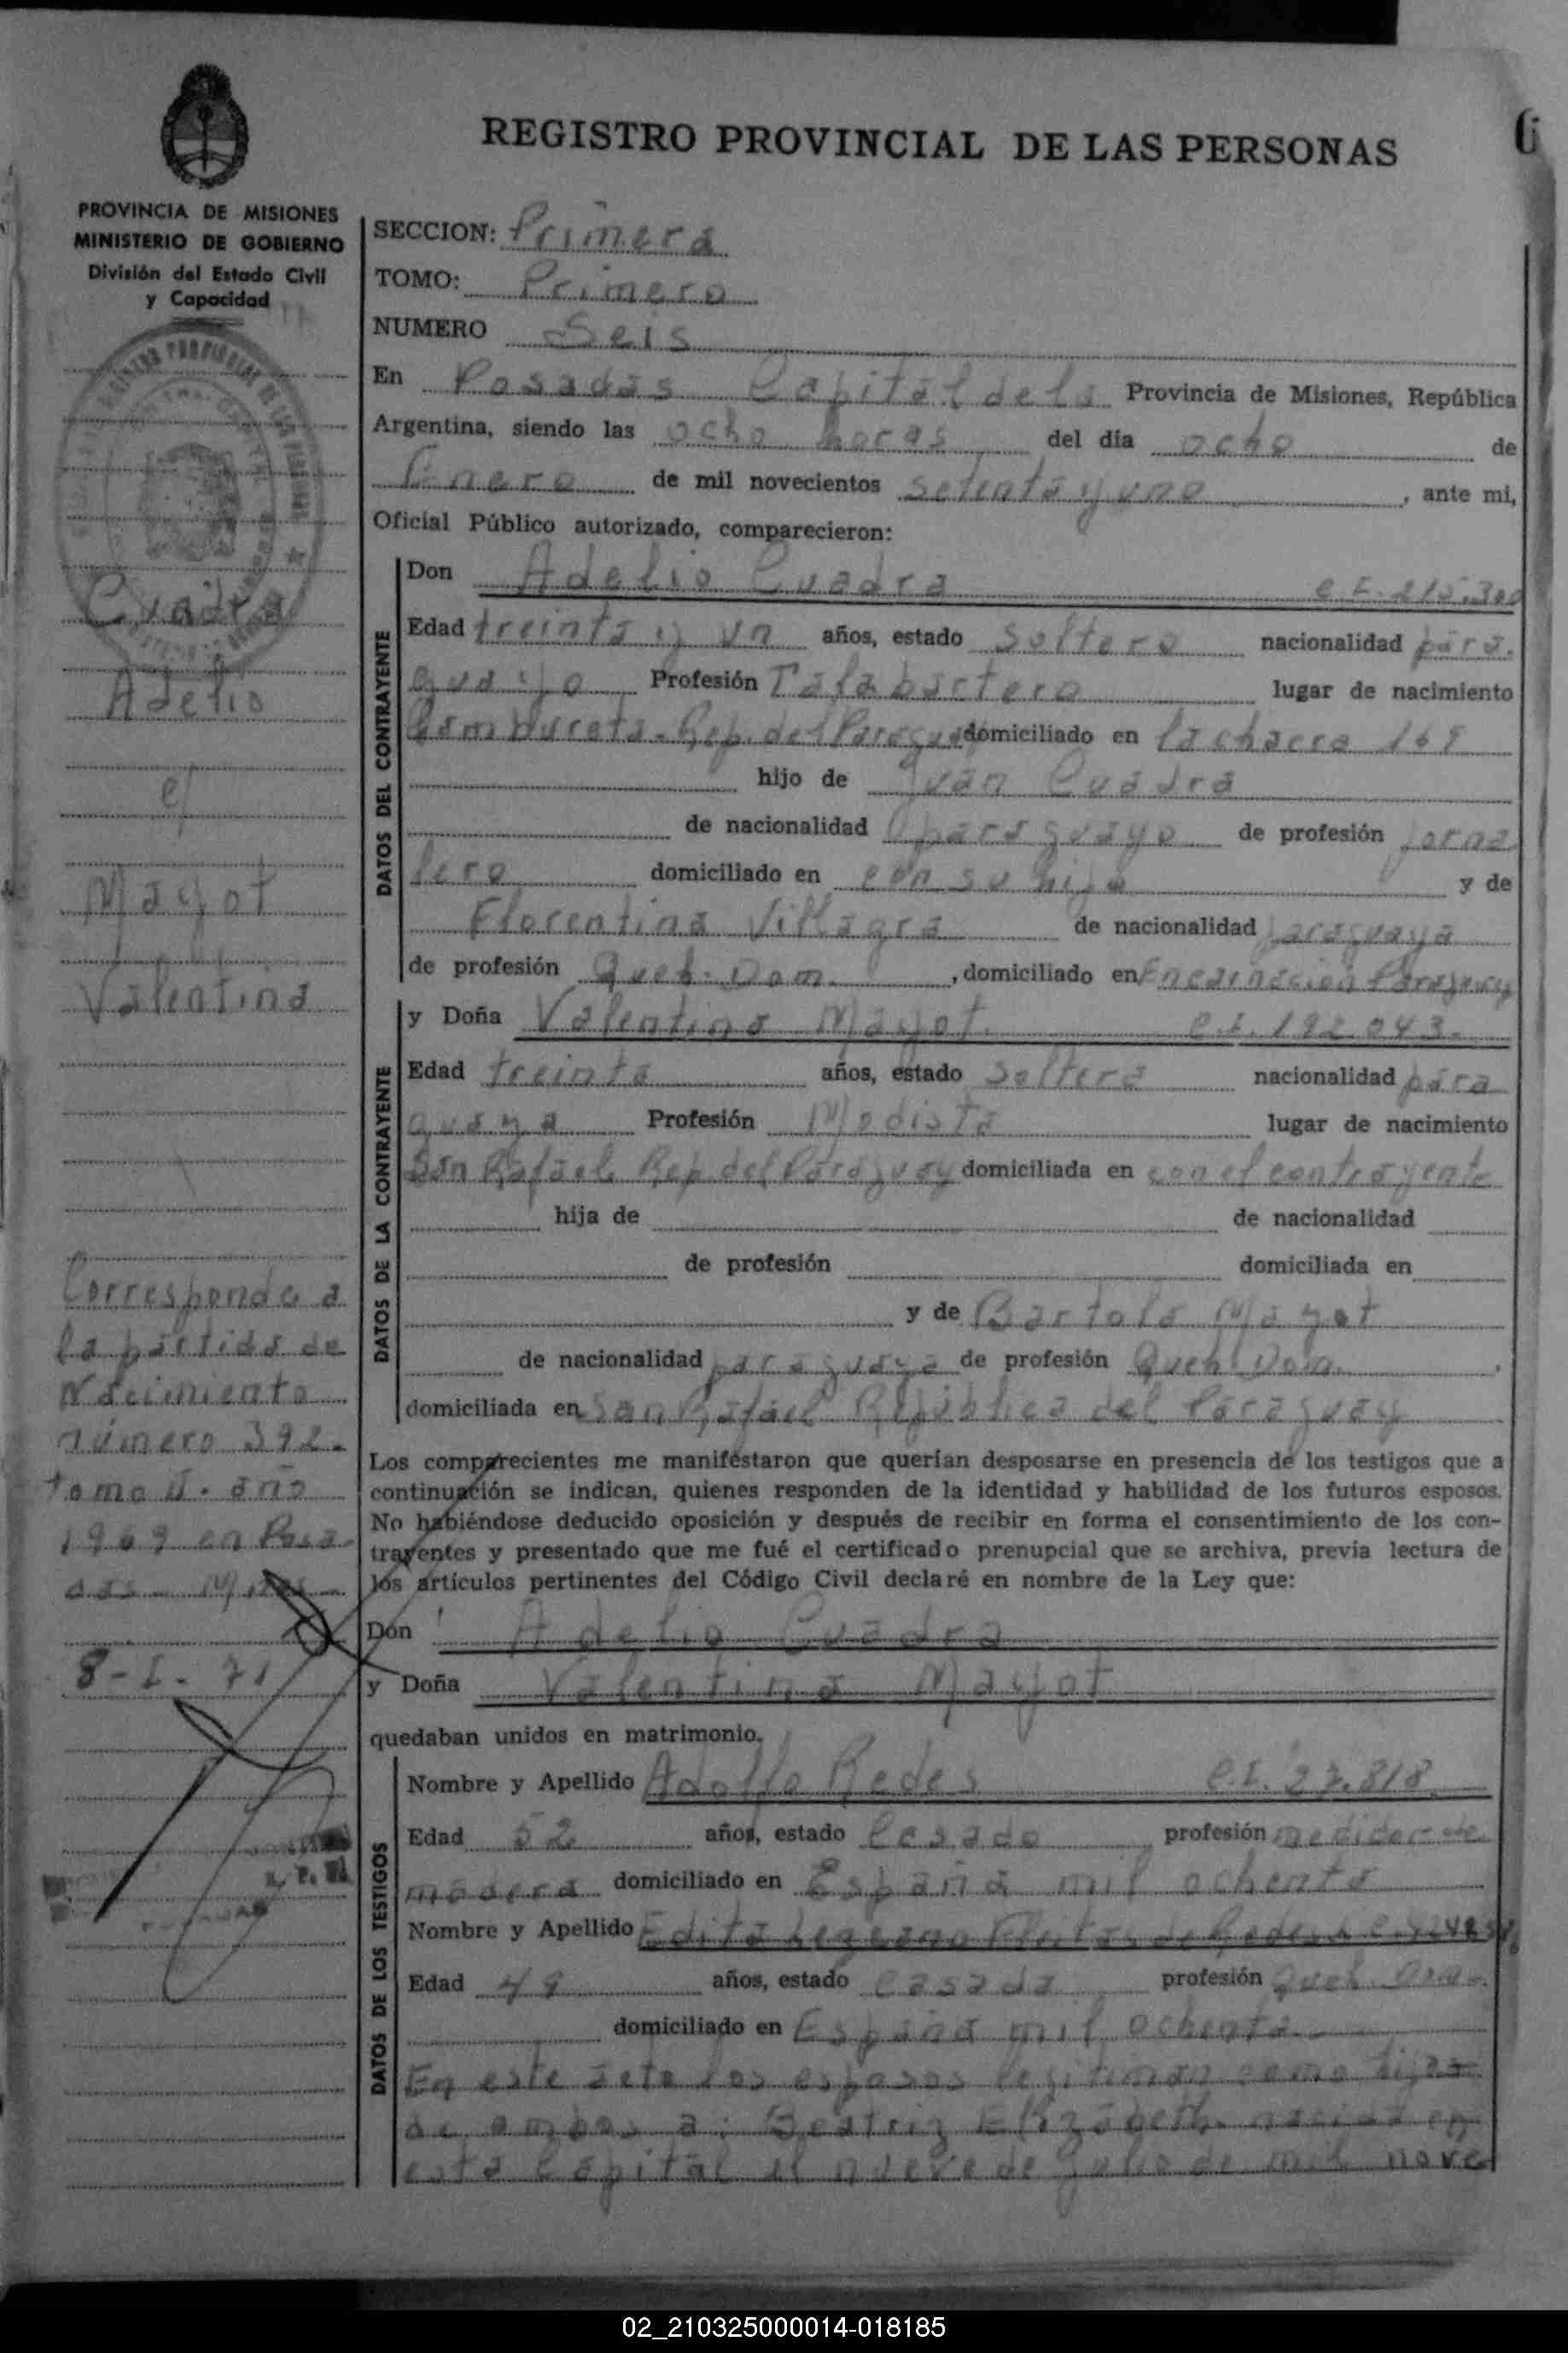 REGISTRO PROVINCIAL DE LAS PERSONAS
6
PROVINCIA DE MISIONES
MINISTERIO DE GOBIERNO
División del Estado Civil
y Capacidad
SECCION: Primera
TOMO: Primero
NUMERO Seis
En Posadas Capital de la Provincia de Misiones, República
Argentina, siendo las ocho horas del día ocho de
Enero de mil novecientos setenta y uno, ante mi,
Oficial Público autorizado, comparecieron:
DATOS DEL CONTRAYENTE
Don Adelio Cuadra C.I.
Edad treinta y un años, estado Soltero nacionalidad para-
guayo Profesión Talabartero lugar de nacimiento
Rep. del Paraguay domiciliado en la chacra
hijo de Juan Cuadra
de nacionalidad paraguayo de profesión Jorna
lero domiciliado en con su hijo y de
Florentina Villagra de nacionalidad paraguaya
de profesión Queh. Dom., domiciliado en Encarnación Paraguay
DATOS DE LA CONTRAYENTE
y Doña Valentina Mayot C.I. 192.043.
Edad treinta años, estado Soltera nacionalidad para
guaya Profesión Modista lugar de nacimiento
San Rafael Rep. del Paraguay domiciliada en con el contrayente
hija de de nacionalidad
de profesión domiciliada en
y de Bartola Mayot
de nacionalidad paraguaya de profesión Queh. Dom.,
domiciliada en San Rafael República del Paraguay
Los comparecientes me manifestaron que querían desposarse en presencia de los testigos que a
continuación se indican, quienes responden de la identidad y habilidad de los futuros esposos.
No habiéndose deducido oposición y después de recibir en forma el consentimiento de los con-
trayentes y presentado que me fué el certificado prenupcial que se archiva, previa lectura de
los artículos pertinentes del Código Civil declaré en nombre de la Ley que:
Don Adelio Cuadra
y Doña Valentina Mayot
quedaban unidos en matrimonio.
DATOS DE LOS TESTIGOS
Nombre y Apellido Adolfo Redes C.I. 27.818
Edad 52 años, estado Casado profesión medidor de
madera domiciliado en España mil ochenta
Nombre y Apellido Edita de
Edad años, estado casada profesión Queh. Dom.
domiciliado en España mil ochenta
En este acto los esposos legitiman como hijas
de ambos a: Beatriz Elizabeth nacida en
esta Capital el nueve de Julio de mil nove
Cuadra
Adelio
c/
Mayot
Valentina
Corresponde a
la partida de
Nacimiento
número 392.
tomo II. año
1969 en Posa-
das
8-I-71
02_210325000014-018185